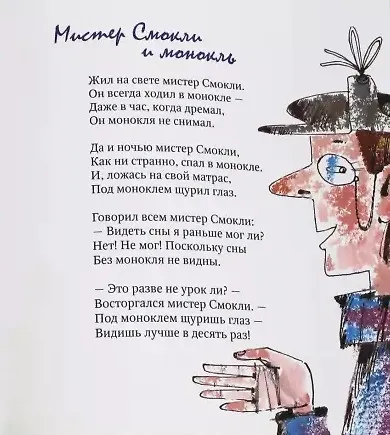 Мистер Смокли
и монокль
Жил на свете мистер Смокли.
Он всегда ходил в монокле —
Даже в час, когда дремал,
Он монокля не снимал.
Да и ночью мистер Смокли,
Как ни странно, спал в монокле.
И, ложась на свой матрас,
Под моноклем щурил глаз.
Говорил всем мистер Смокли:
— Видеть сны я раньше мог ли?
Нет! Не мог! Поскольку сны
Без монокля не видны.
— Это разве не урок ли? —
Восторгался мистер Смокли. —
Под моноклем щуришь глаз —
Видишь лучше в десять раз!